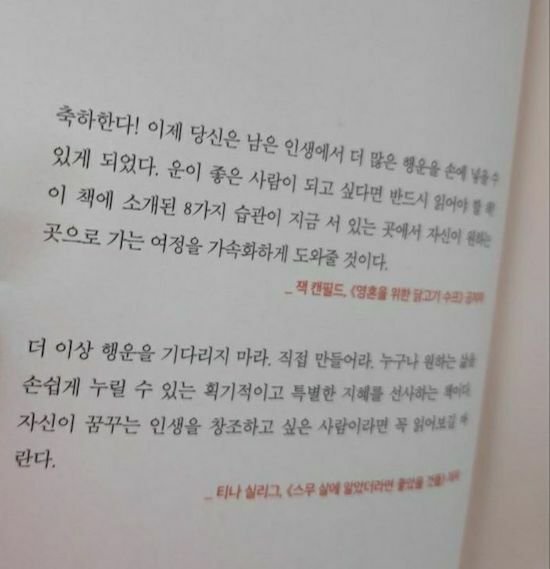 축하한다! 이제 당신은 남은 인생에서 더 많은 행운을 손에 넣을 수
있게 되었다. 운이 좋은 사람이 되고 싶다면 반드시 읽어야 할 책!
이 책에 소개된 8가지 습관이 지금 서 있는 곳에서 자신이 원하는
곳으로 가는 여정을 가속화하게 도와줄 것이다.
_ 잭 캔필드, 《영혼을 위한 닭고기 수프》 공저자
더 이상 행운을 기다리지 마라. 직접 만들어라. 누구나 원하는 삶을
손쉽게 누릴 수 있는 획기적이고 특별한 지혜를 선사하는 책이다.
자신이 꿈꾸는 인생을 창조하고 싶은 사람이라면 꼭 읽어보길 바
란다.
_ 티나 실리그, 《스무 살에 알았더라면 좋았을 것들》 저자